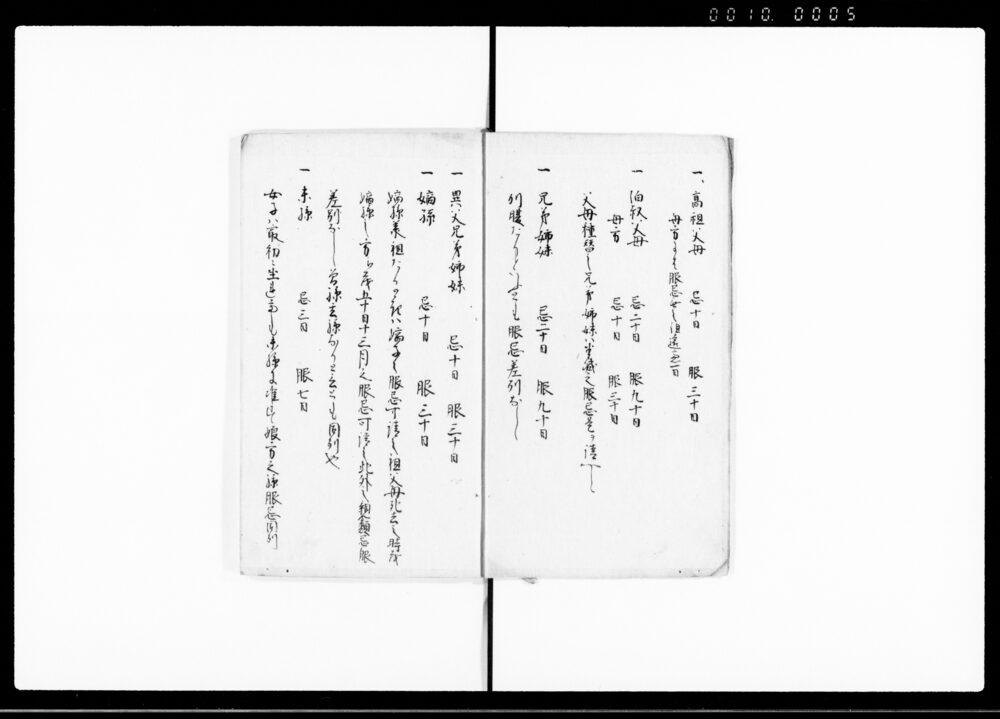 0010. 0005
一、高祖父母 忌十日 服三十日
母方ニも服忌せし但遠慮一日
一 伯叔父母 忌二十日 服九十日
母方 忌十日 服三十日
父母種替し兄弟姉妹ハ半減之服忌
一 兄弟姉妹 忌二十日 服九十日
別腹たりといへとも服忌差別なし
一 異父兄弟姉妹 忌十日 服三十日
一 嫡孫 忌十日 服三十日
嫡孫承祖たる時ハ嫡子之服忌可請之祖父母死去之時
嫡孫之方も五十日十三月之服忌可請之此外之親類忌服
差別なし曾孫玄孫たりといへとも同例也
一 末孫 忌三日 服七日
女子ハ最初ニ生レ候而も末孫ニ准シ娘方之孫服忌同例